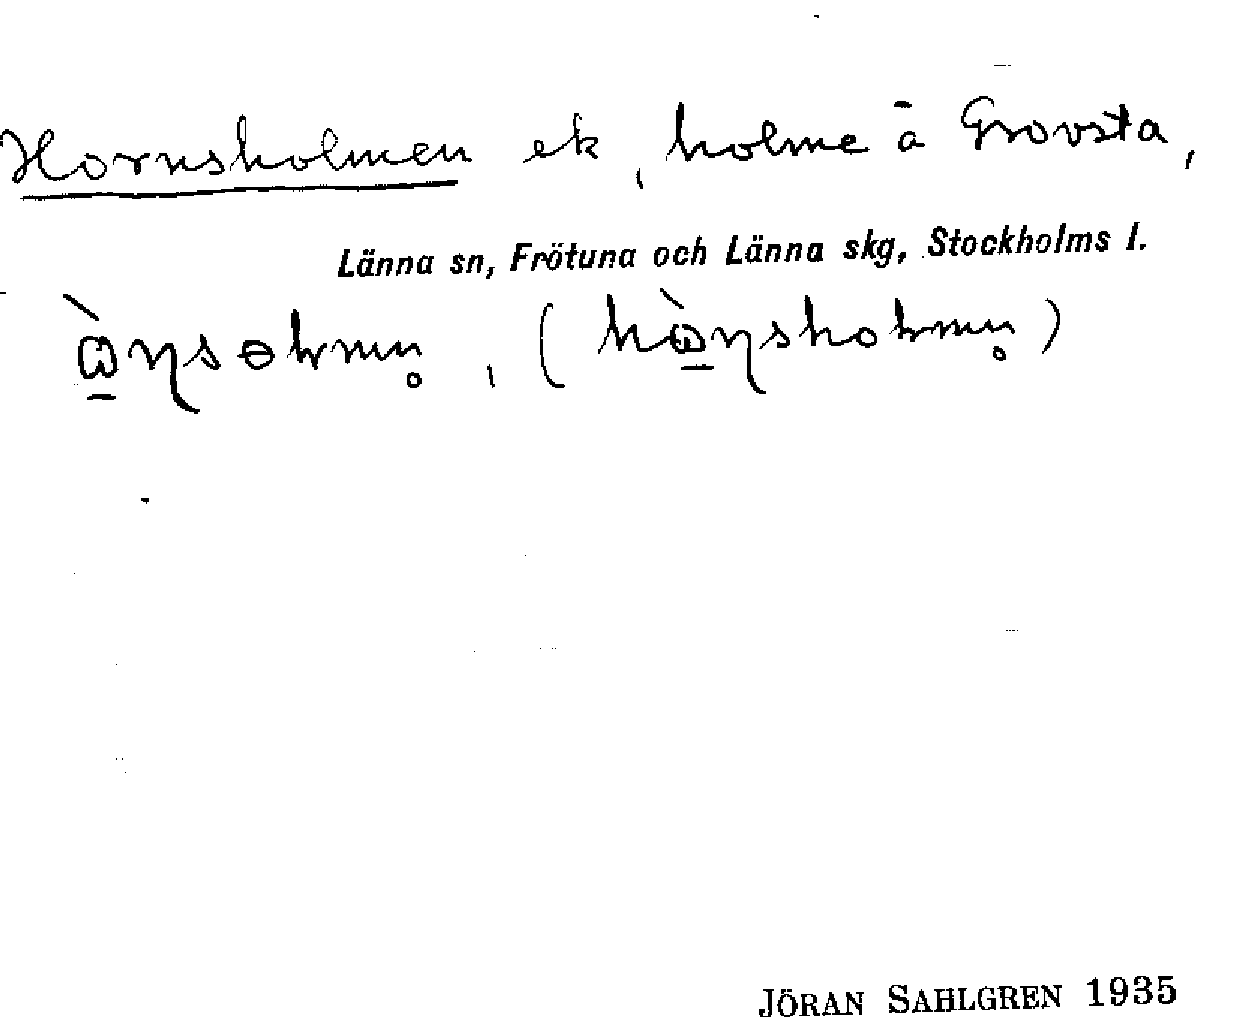 Hornsholmen ek, holme å Grovsta,
Länna sn, Frötuna och Länna skg, Stockholms l.
JÖRAN SAHLGREN 1935